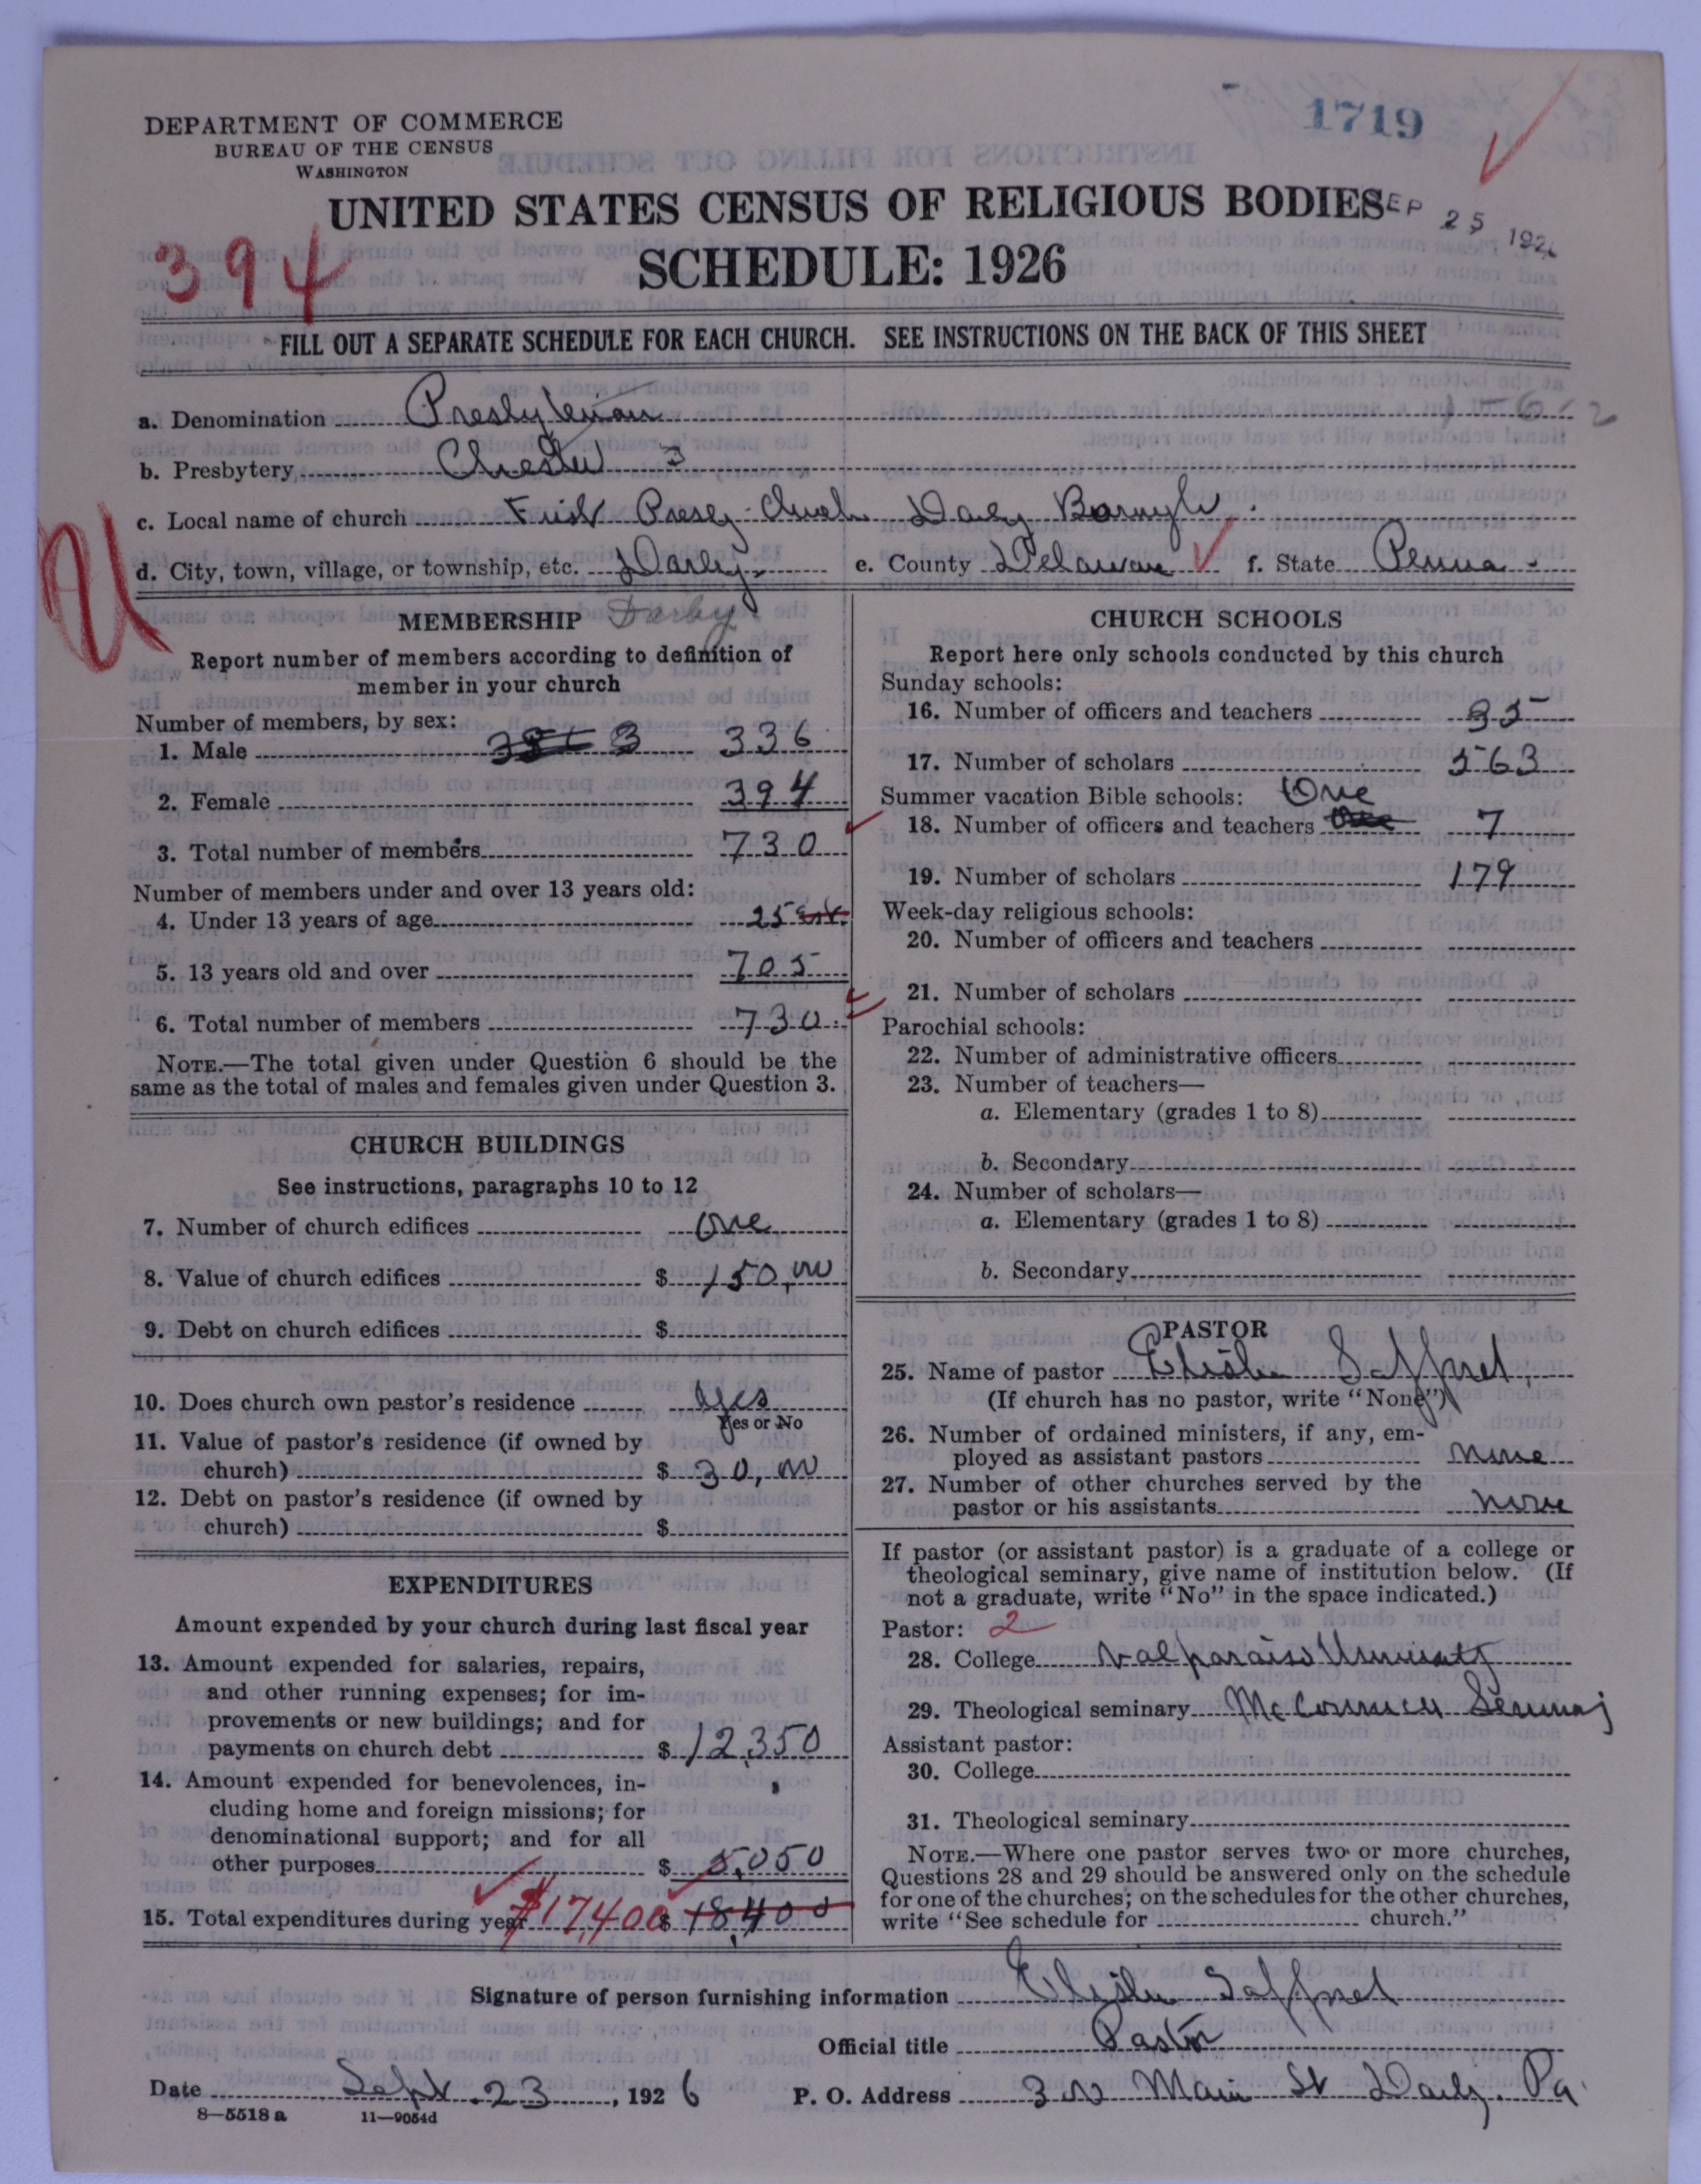 1719
DEPARTMENT OF COMMERCE
BUREAU OF THE CENSUS
WASHINGTON
UNITED STATES CENSUS OF RELIGIOUS BODIES
SEP 25 1926
394
SCHEDULE: 1926
FILL OUT A SEPARATE SCHEDULE FOR EACH CHURCH. SEE INSTRUCTIONS ON THE BACK OF THIS SHEET
a. Denomination Presbyterian
b. Presbytery Chester 3
c. Local name of church First Presby. Church Darby Borough.
d. City, town, village, or township, etc. Darby. e. County Delaware f. State Penna.
Darby
MEMBERSHIP
Report number of members according to definition of
member in your church
Number of members, by sex:
1. Male 336
2. Female 394
3. Total number of members 730
Number of members under and over 13 years old:
4. Under 13 years of age 25
5. 13 years old and over 705
6. Total number of members 730
NOTE.—The total given under Question 6 should be the
same as the total of males and females given under Question 3.
CHURCH BUILDINGS
See instructions, paragraphs 10 to 12
7. Number of church edifices one
8. Value of church edifices $ 150,00
9. Debt on church edifices $
10. Does church own pastor's residence yes
Yes or No
11. Value of pastor's residence (if owned by
church) $ 30,00
12. Debt on pastor's residence (if owned by
church) $
EXPENDITURES
Amount expended by your church during last fiscal year
13. Amount expended for salaries, repairs,
and other running expenses; for im-
provements or new buildings; and for
payments on church debt $ 12,350
14. Amount expended for benevolences, in-
cluding home and foreign missions; for
denominational support; and for all
other purposes $ 5,050
15. Total expenditures during year $17,400 $ 18,400
CHURCH SCHOOLS
Report here only schools conducted by this church
Sunday schools:
16. Number of officers and teachers 35
17. Number of scholars 563
Summer vacation Bible schools: One
18. Number of officers and teachers 7
19. Number of scholars 179
Week-day religious schools:
20. Number of officers and teachers
21. Number of scholars
Parochial schools:
22. Number of administrative officers
23. Number of teachers—
a. Elementary (grades 1 to 8)
b. Secondary
24. Number of scholars—
a. Elementary (grades 1 to 8)
b. Secondary
PASTOR
25. Name of pastor Elisha Safford
(If church has no pastor, write "None")
26. Number of ordained ministers, if any, em-
ployed as assistant pastors None
27. Number of other churches served by the
pastor or his assistants None
If pastor (or assistant pastor) is a graduate of a college or
theological seminary, give name of institution below. (If
not a graduate, write "No" in the space indicated.)
Pastor: 2
28. College Valparaiso University
29. Theological seminary McCormick Seminary
Assistant pastor:
30. College
31. Theological seminary
NOTE.—Where one pastor serves two or more churches,
Questions 28 and 29 should be answered only on the schedule
for one of the churches; on the schedules for the other churches,
write "See schedule for church."
Signature of person furnishing information Elisha Safford
Official title Pastor
Date Sept. 23, 1926 P. O. Address 300 Main St Darby. Pa.
8—5518 a 11—9054d